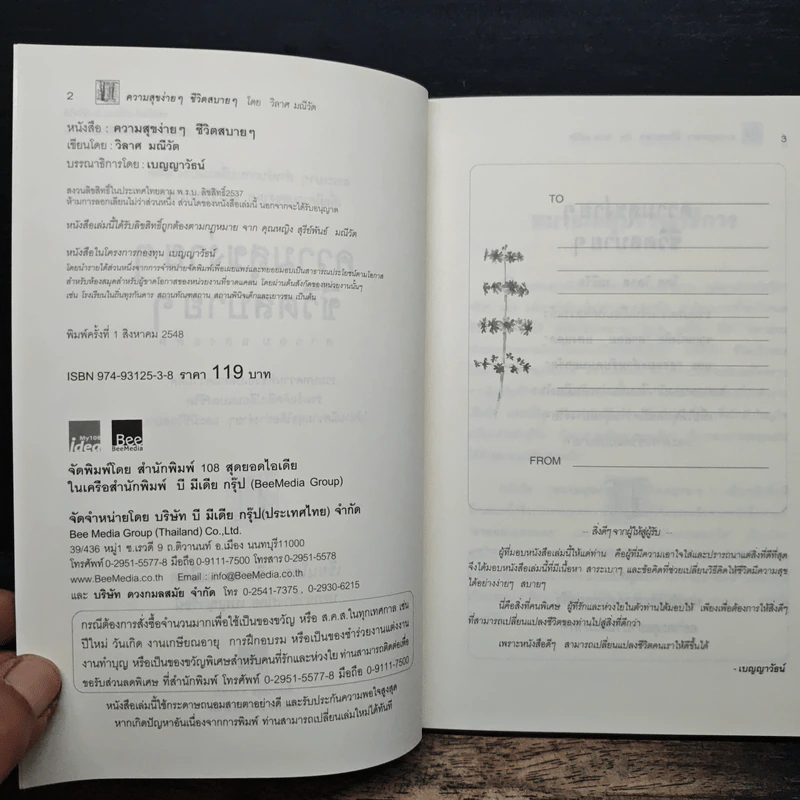 2 ความสุขง่ายๆ ชีวิตสบายๆ โดย วิลาศ มณีวัต
หนังสือ : ความสุขง่ายๆ ชีวิตสบายๆ
เขียนโดย : วิลาศ มณีวัต
บรรณาธิการโดย : เบญญาวัธน์
สงวนลิขสิทธิ์ในประเทศไทยตาม พ.ร.บ. ลิขสิทธิ์2537
ห้ามการลอกเลียนไม่ว่าส่วนหนึ่ง ส่วนใดของหนังสือเล่มนี้ นอกจากจะได้รับอนุญาต
หนังสือเล่มนี้ได้รับลิขสิทธิ์ถูกต้องตามกฎหมาย จาก คุณหญิง สุรีย์พันธ์ มณีวัต
หนังสือในโครงการกองทุน เบญญาวัธน์
โดยนำรายได้ส่วนหนึ่งจากการจำหน่ายจัดพิมพ์เพื่อเผยแพร่และทยอยมอบเป็นสาธารณประโยชน์ตามโอกาส
สำหรับห้องสมุดสำหรับผู้ขาดโอกาสของหน่วยงานที่ขาดแคลน โดยผ่านต้นสังกัดของหน่วยงานนั้นๆ
เช่น โรงเรียนในถิ่นทุรกันดาร สถานทัณฑสถาน สถานพินิจเด็กและเยาวชน เป็นต้น
พิมพ์ครั้งที่ 1 สิงหาคม 2548
ISBN 974-93125-3-8 ราคา 119 บาท
My108
idea
Bee
BeeMedia
จัดพิมพ์โดย สำนักพิมพ์ 108 สุดยอดไอเดีย
ในเครือสำนักพิมพ์ บี มีเดีย กรุ๊ป (BeeMedia Group)
จัดจำหน่ายโดย บริษัท บี มีเดีย กรุ๊ป(ประเทศไทย) จำกัด
Bee Media Group (Thailand) Co.,Ltd.
39/436 หมู่1 ซ.เรวดี 9 ถ.ติวานนท์ อ.เมือง นนทบุรี11000
โทรศัพท์ 0-2951-5577-8 มือถือ 0-9111-7500 โทรสาร 0-2951-5578
www.BeeMedia.co.th Email : info@BeeMedia.co.th
และ บริษัท ดวงกมลสมัย จำกัด โทร 0-2541-7375 , 0-2930-6215
กรณีต้องการสั่งซื้อจำนวนมากเพื่อใช้เป็นของขวัญ หรือ ส.ค.ส.ในทุกเทศกาล เช่น
ปีใหม่ วันเกิด งานเกษียณอายุ การฝึกอบรม หรือเป็นของชำร่วยงานแต่งงาน
งานทำบุญ หรือเป็นของขวัญพิเศษสำหรับคนที่รักและห่วงใย ท่านสามารถติดต่อเพื่อ
ขอรับส่วนลดพิเศษ ที่สำนักพิมพ์ โทรศัพท์ 0-2951-5577-8 มือถือ 0-9111-7500
หนังสือเล่มนี้ใช้กระดาษถนอมสายตาอย่างดี และรับประกันความพอใจสูงสุด
หากเกิดปัญหาอันเนื่องจากการพิมพ์ ท่านสามารถเปลี่ยนเล่มใหม่ได้ทันที
3
TO
FROM
-- สิ่งดีๆ จากผู้ให้สู่ผู้รับ --
ผู้ที่มอบหนังสือเล่มนี้ให้แด่ท่าน คือผู้ที่มีความเอาใจใส่และปรารถนาแต่สิ่งที่ดีที่สุด
จึงได้มอบหนังสือเล่มนี้ที่มีเนื้อหา สาระเบาๆ และข้อคิดที่ช่วยเปลี่ยนวิธีคิดให้ชีวิตมีความสุข
ได้อย่างง่ายๆ สบายๆ
นี่คือสิ่งที่คนพิเศษ ผู้ที่รักและห่วงใยในตัวท่านได้มอบให้ เพียงเพื่อต้องการให้สิ่งดีๆ
ที่สามารถเปลี่ยนแปลงชีวิตของท่านไปสู่สิ่งที่ดีกว่า
เพราะหนังสือดีๆ สามารถเปลี่ยนแปลงชีวิตคนเราให้ดีขึ้นได้
- เบญญาวัธน์